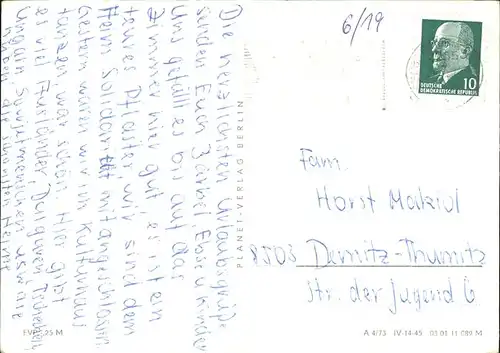 Die herzlichsten Urlaubsgrüße
senden Euch Bärbel, Ebse u Kinder
Uns gefällt es bis auf das
Zimmer hier gut, es ist ein
teures Pflaster, wir sind dem
Heim Solidarität mit angeschlossen.
Gestern waren wir im Kulturhaus
tanzen war schön. Hier gibt
es viel Ausländer, Bulgaren, Tschechen,
Ungarn Sowjetmenschen usw. die
haben die schönsten Heime
EVP 0,25 M
PLANET-VERLAG BERLIN
6/19
DEUTSCHE
DEMOKRATISCHE REPUBLIK
10
Fam.
Horst Makiol
8503 Demitz-Thumitz
Str. der Jugend 6
A 4/73 IV-14-45 03 01 11 089 M